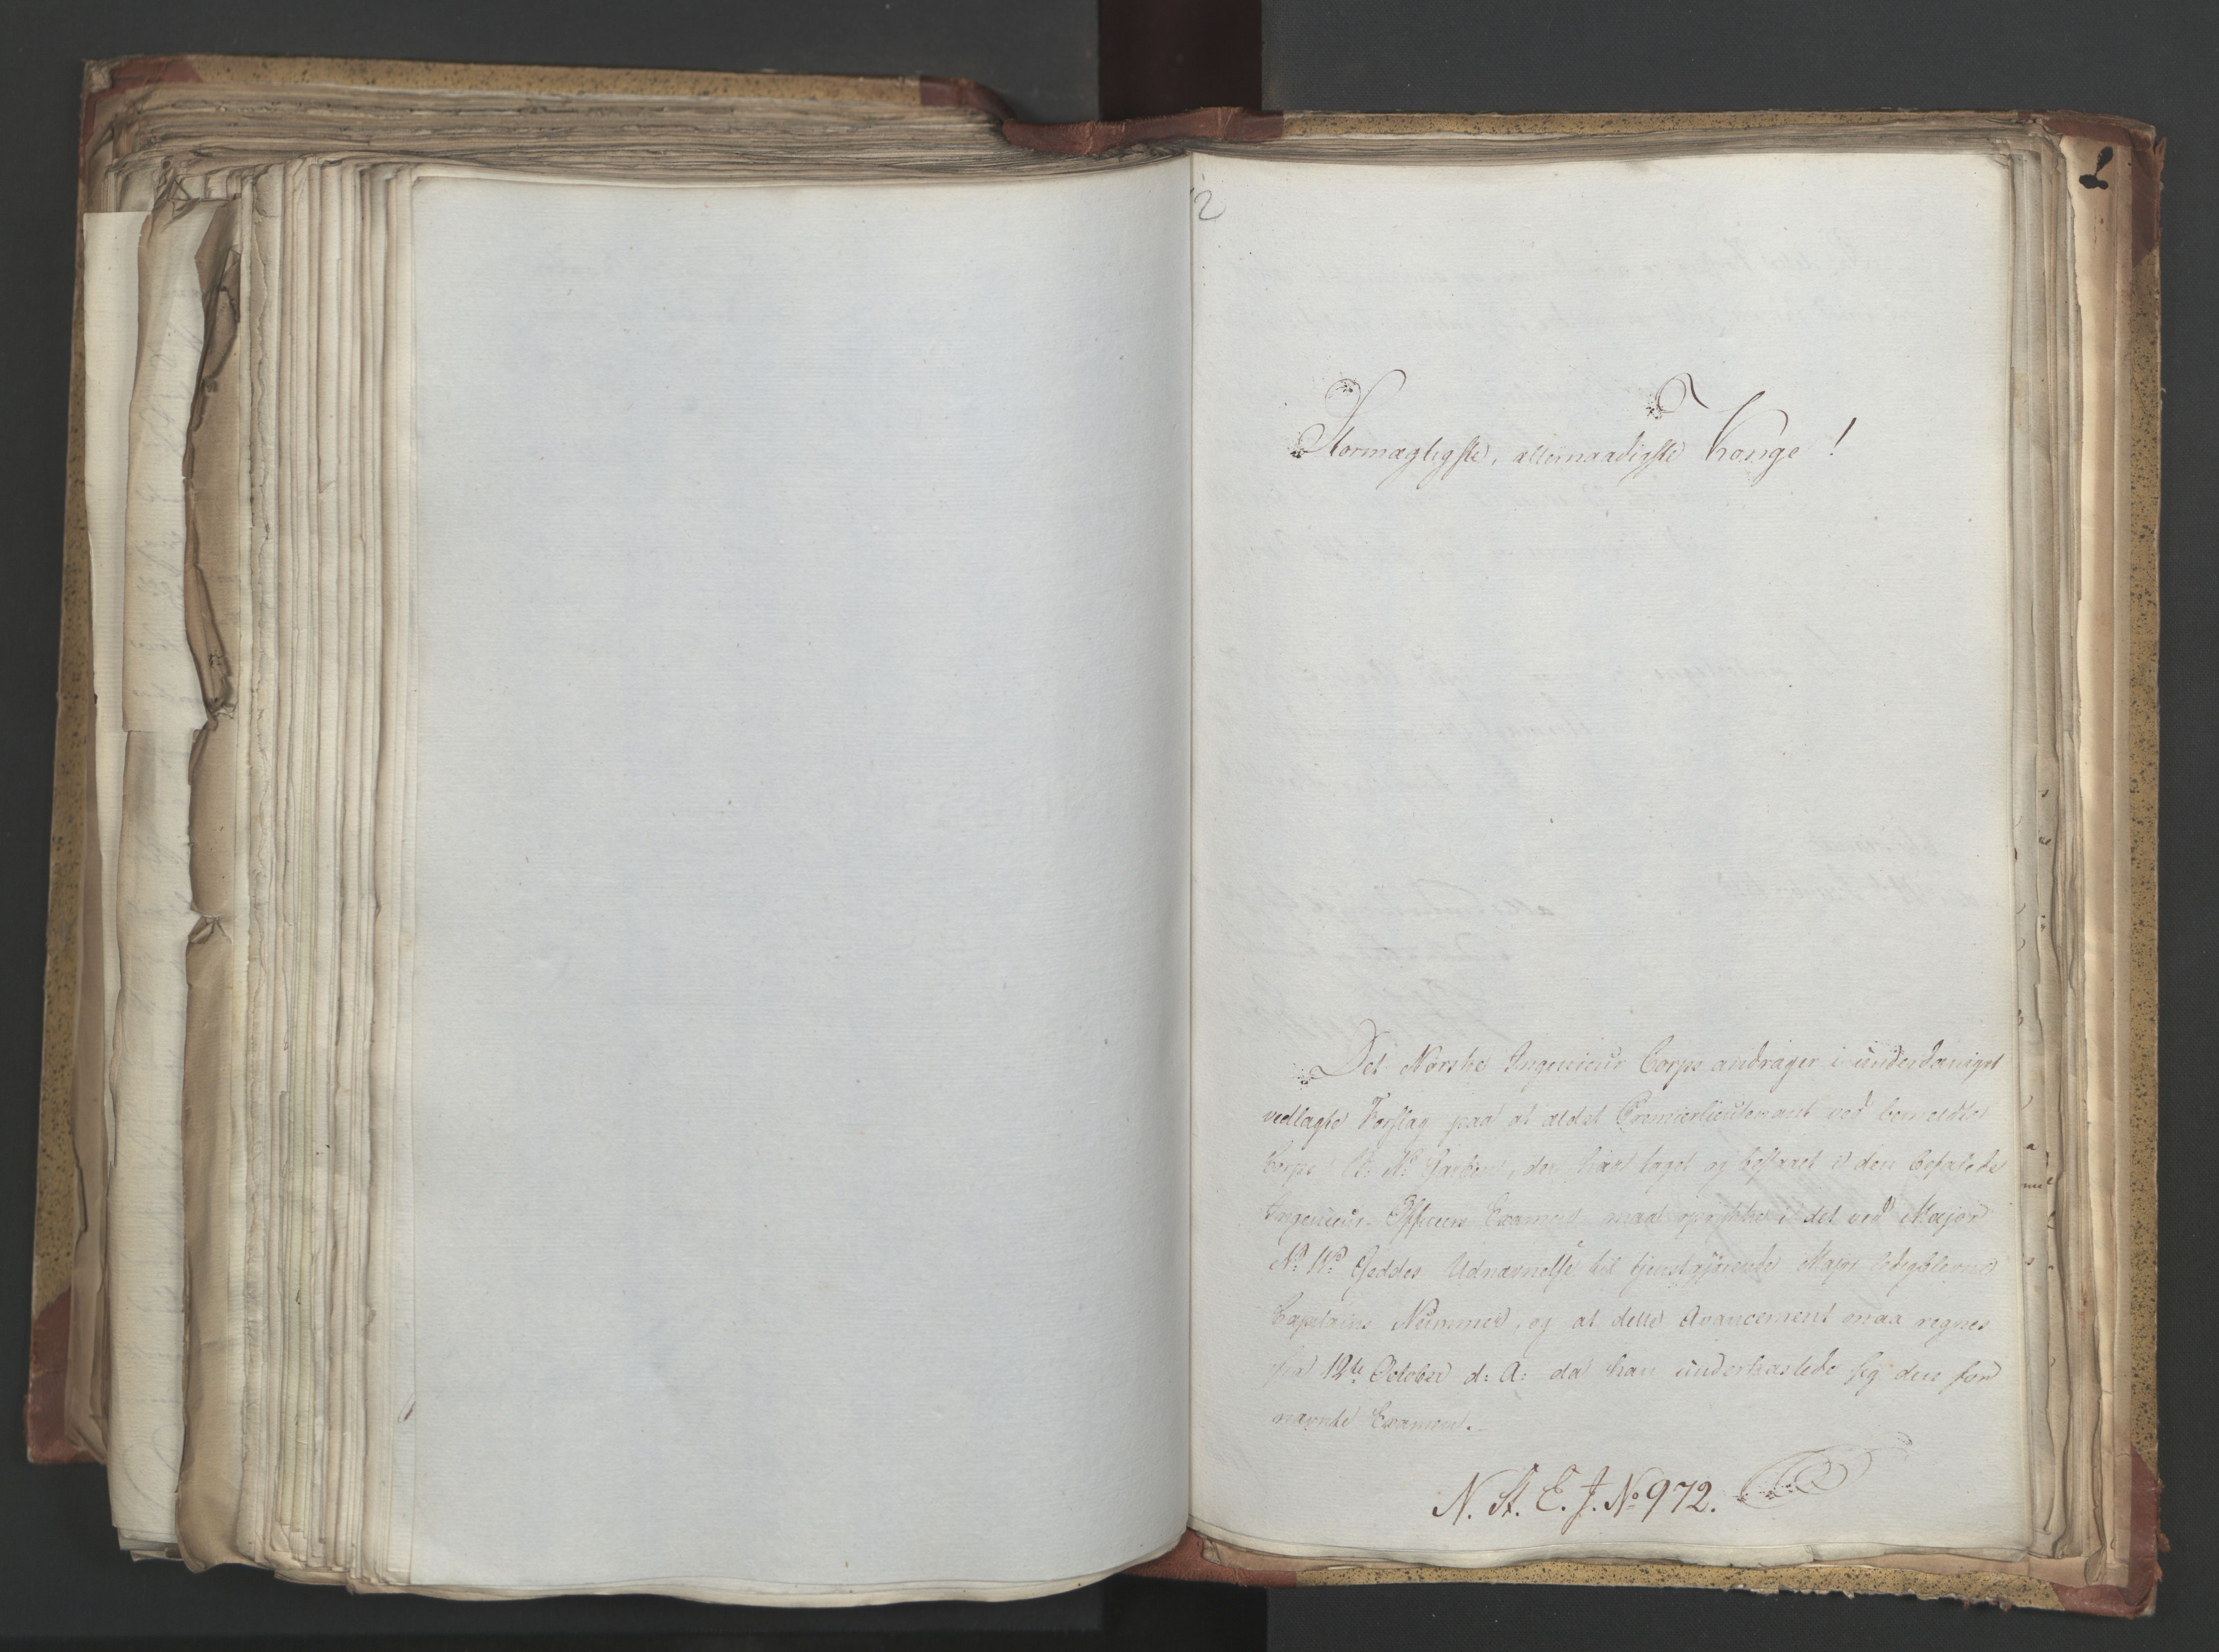 2
Stormægtigste, allernaadigste Konge!
Det Norske Ingenieur Corps andrager i underdanigst
vedlagte Forslag paa at ældst Premierlieutenant ved bemeldte
Corps der har taget og bestaaet i den befalede
Ingenieur-Officeers Examen maa opr i det ved Major
N: W: Geddes Udnævnelse til tjenstgjørende Major ledigblevne
Capitains Nummer, og at dette Avancement maa regnes
fra 12te October d: A: da han underkastede sig den for
nævnte Examen.
N. St. E. J. No 972.